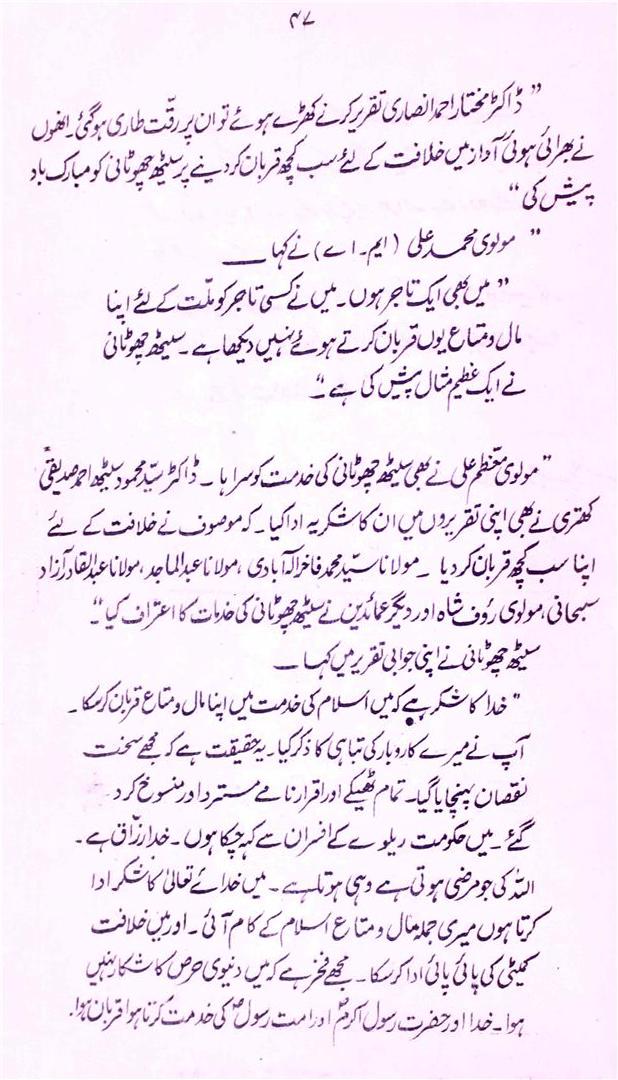 ۴۷
” ڈاکٹر مختار احمد انصاری تقریر کرنے کھڑے ہوئے تو ان پر رقّت طاری ہوگئی۔ انھوں
نے بھرائی ہوئی آواز میں خلافت کے لئے سب کچھ قربان کردینے پر سیٹھ چھوٹانی کو مبارک باد
پیش کی “
” مولوی محمد علی (ایم۔ اے) نے کہا ــــــ
” میں بھی ایک تاجر ہوں۔ میں نے کسی تاجر کو ملّت کے لئے اپنا
مال و متاع یوں قربان کرتے ہوئے نہیں دیکھا ہے۔ سیٹھ چھوٹانی
نے ایک عظیم مثال پیش کی ہے “۔
” مولوی معظم علی نے بھی سیٹھ چھوٹانی کی خدمت کو سراہا۔ ڈاکٹر سیّد محمود سیٹھ احمد صدیقی
کھتری نے بھی اپنی تقریروں میں ان کا شکریہ ادا کیا۔ کہ موصوف نے خلافت کے لئے
اپنا سب کچھ قربان کر دیا ۔ مولانا سیّد محمد فاخر الہ آبادی، مولانا عبدالماجد، مولانا عبدالقادر آزاد
سبحانی، مولوی رؤف شاہ اور دیگر عمائدین نے سیٹھ چھوٹانی کی خدمات کا اعتراف کیا “۔
سیٹھ چھوٹانی نے اپنی جوابی تقریر میں کہا ــــ
” خدا کا شکر ہے کہ میں اسلام کی خدمت میں اپنا مال و متاع قربان کرسکا۔
آپ نے میرے کاروبار کی تباہی کا ذکر کیا۔ یہ حقیقت ہے کہ مجھے سخت
نقصان پہنچایا گیا۔ تمام ٹھیکے اور اقرار نامے مسترد اور منسوخ کر د
گئے۔ میں حکومت ریلوے کے افسران سے کہہ چکا ہوں۔ خدا رزّاق ہے۔
اللہ کی جو مرضی ہوتی ہے وہی ہوتا ہے۔ میں خدائے تعالیٰ کا شکر ادا
کرتا ہوں میری جملہ مال و متاع اسلام کے کام آئی۔ اور میں خلافت
کمیٹی کی پائی پائی ادا کرسکا۔ مجھے فخر ہے کہ میں دنیوی حرص کا شکار نہیں
ہوا۔ خدا اور حضرت رسول اکرمؐ اور امت رسولؐ کی خدمت کرتا ہوا قربان ہوا۔